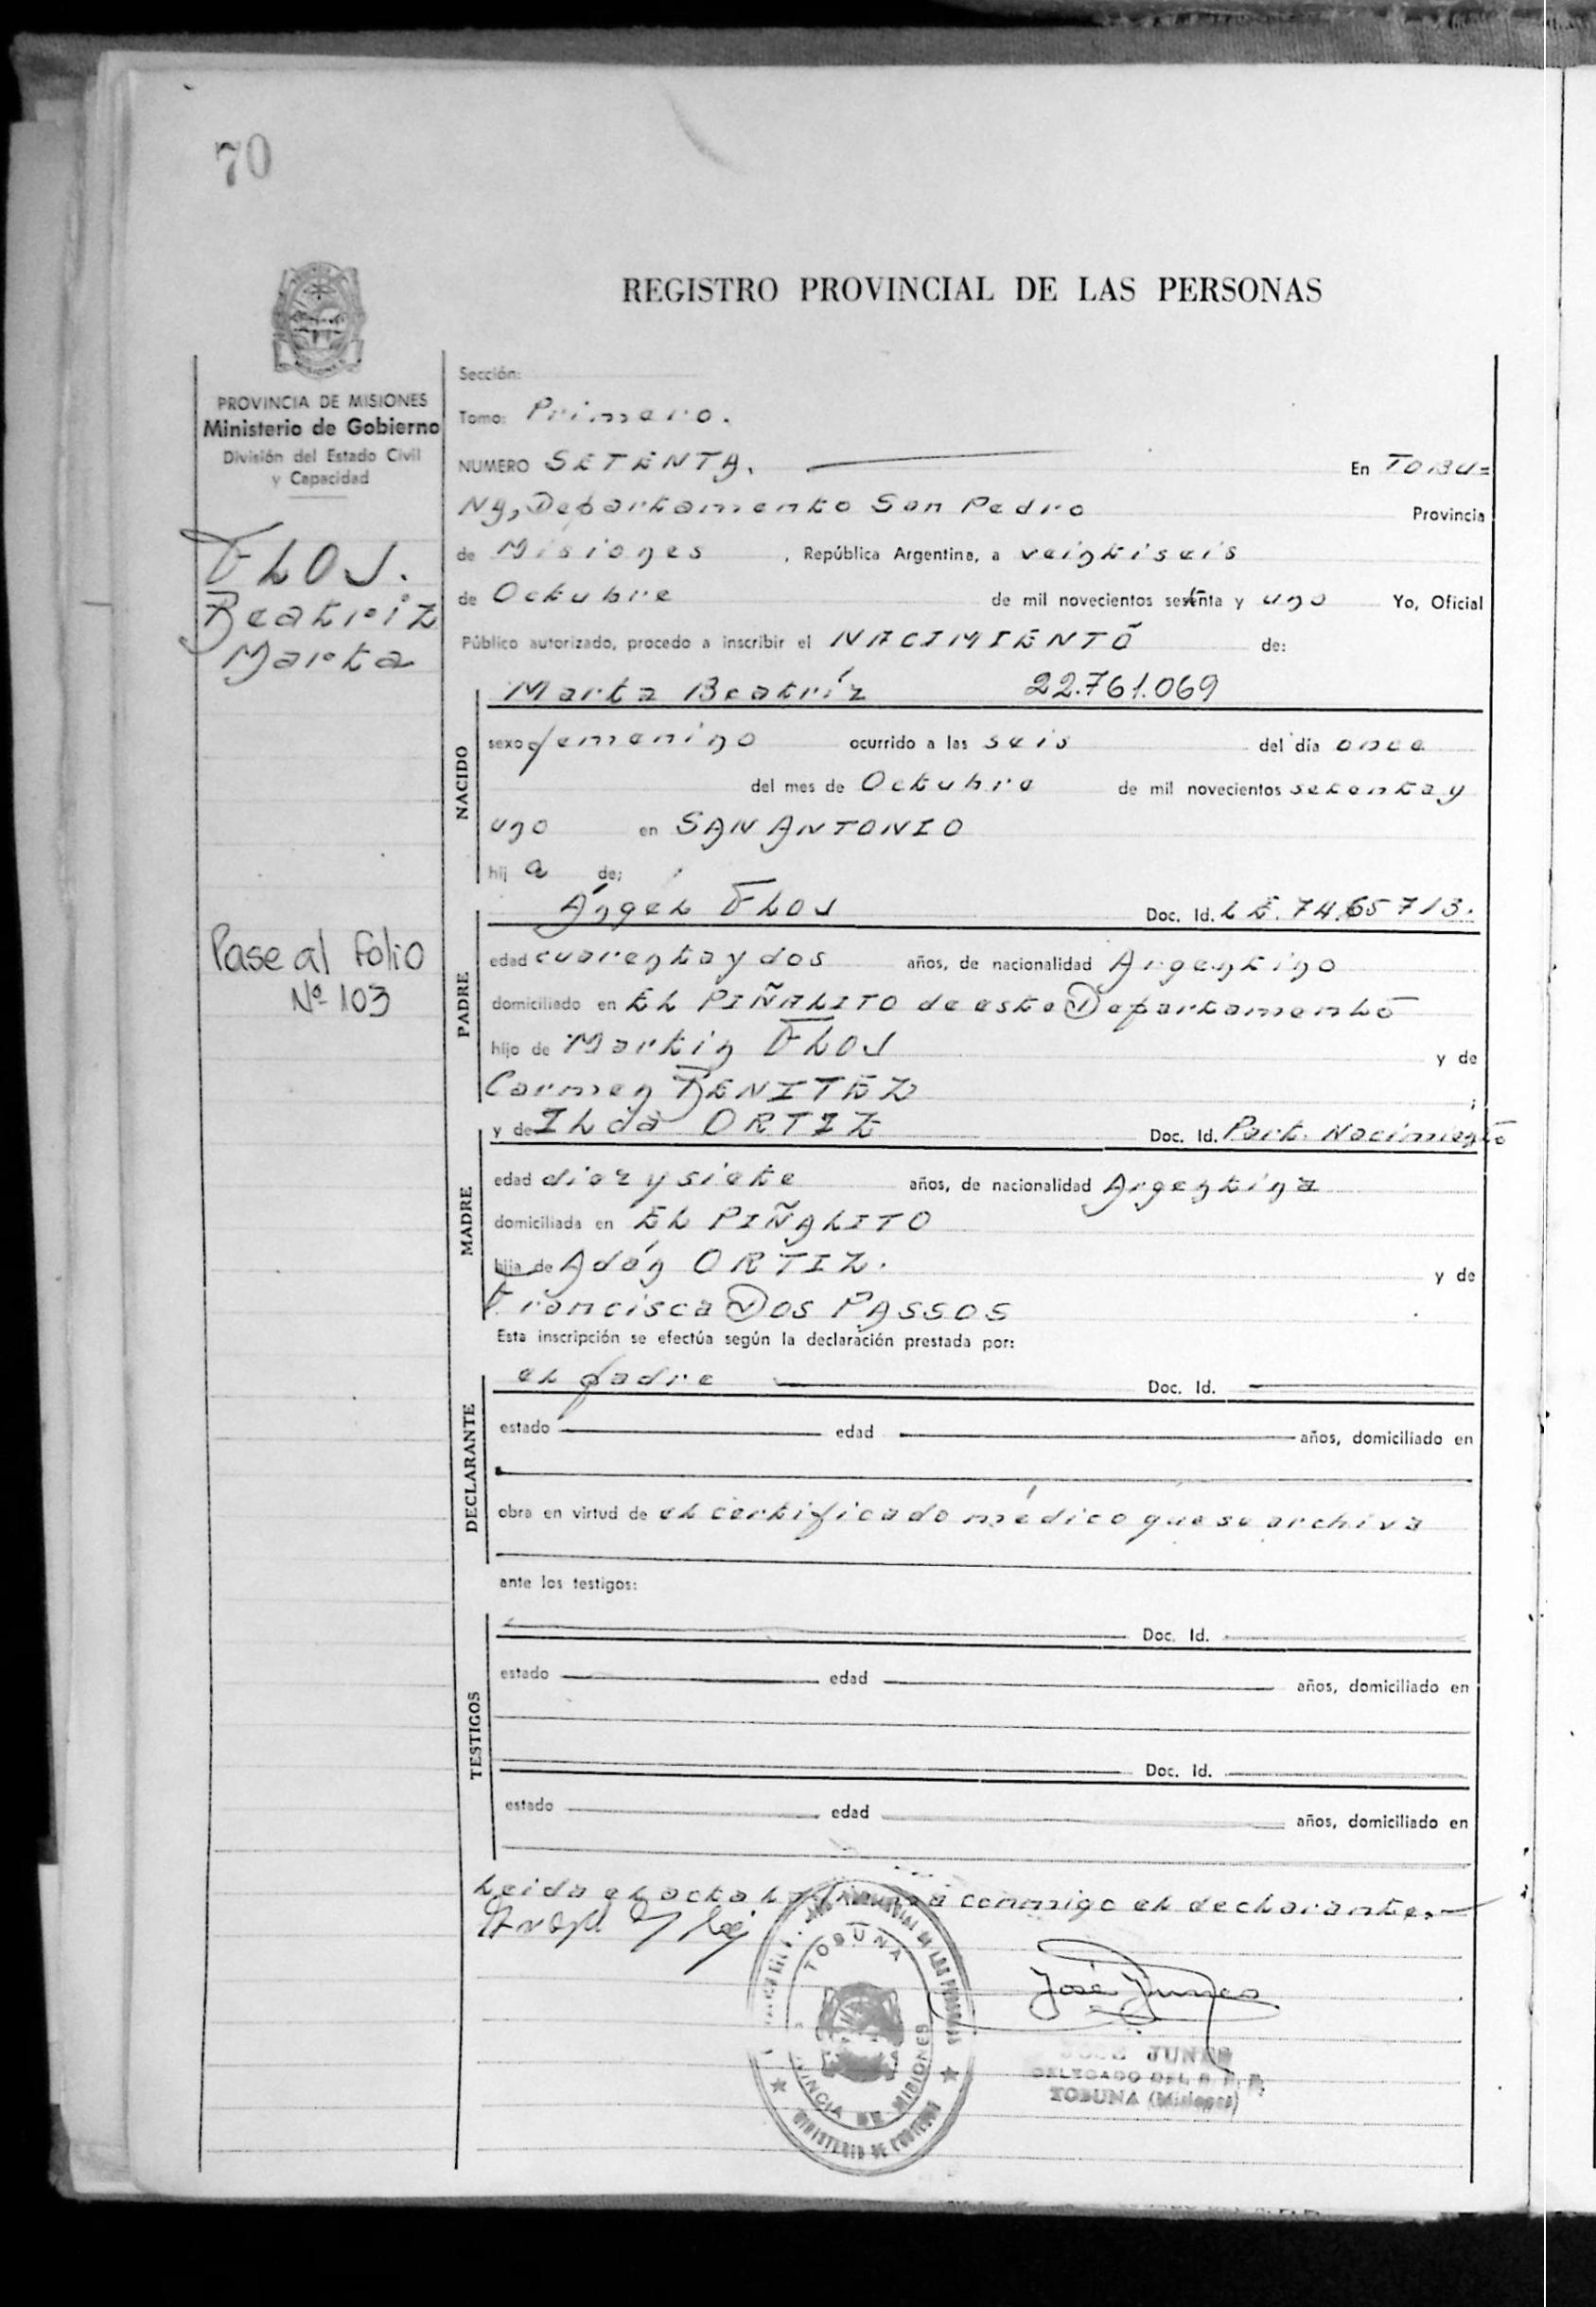 70
REGISTRO PROVINCIAL DE LAS PERSONAS
PROVINCIA DE MISIONES
Ministerio de Gobierno
División del Estado Civil
y Capacidad
FLOS.
Beatriz
Marta
Pase al folio
Nº 103
Sección:
Tomo: Primero.
NUMERO SETENTA. En TOBU=
NA, Departamento San Pedro Provincia
de Misiones , República Argentina, a veintiseis
de Octubre de mil novecientos setenta y uno Yo, Oficial
Público autorizado, procedo a inscribir el NACIMIENTO de:
NACIDO
Marta Beatríz 22.761.069
sexo femenino ocurrido a las seis del día once
del mes de Octubre de mil novecientos setenta y
uno en SAN ANTONIO
hij a de:
PADRE
Ángel FLOS Doc. Id. L E. 74.65713.
edad cuarenta y dos años, de nacionalidad Argentino
domiciliado en EL PIÑALITO de este Departamento
hijo de Martin FLOS y de
Carmen BENITEZ ;
MADRE
y de Ilda ORTIZ Doc. Id. Part. Nacimiento
edad diez y siete años, de nacionalidad Argentina
domiciliada en EL PIÑALITO
hija de Adán ORTIZ. y de
Francisca DOS PASSOS
Esta inscripción se efectúa según la declaración prestada por:
DECLARANTE
el padre Doc. Id.
estado edad años, domiciliado en
obra en virtud de el certificado médico que se archiva
ante los testigos:
TESTIGOS
Doc. Id.
estado edad años, domiciliado en
Doc. Id.
estado edad años, domiciliado en
Leida el acta la firma conmigo el declarante.
TOBUNA
PROVINCIA DE MISIONES
MINISTERIO DE GOBIERNO
José Junes
JOSÉ JUNES
DELEGADO DEL R. P. P.
TOBUNA (Misiones)